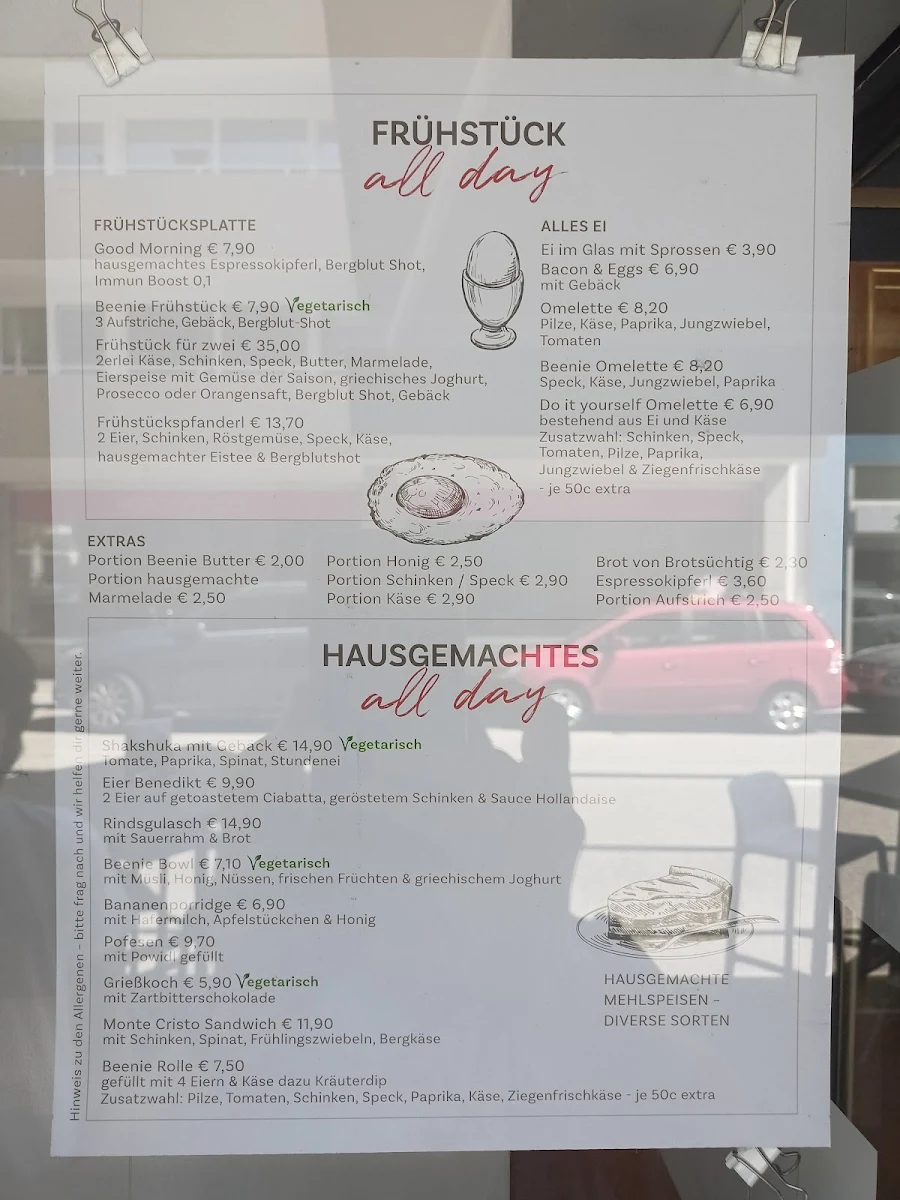 FRÜHSTÜCK
all day
FRÜHSTÜCKSPLATTE
Good Morning € 7,90
hausgemachtes Espressokipferl, Bergblut Shot,
Immun Boost 0,1
Beenie Frühstück € 7,90 Vegetarisch
3 Aufstriche, Gebäck, Bergblut-Shot
Frühstück für zwei € 35,00
2erlei Käse, Schinken, Speck, Butter, Marmelade,
Eierspeise mit Gemüse der Saison, griechisches Joghurt,
Prosecco oder Orangensaft, Bergblut Shot, Gebäck
Frühstückspfanderl € 13,70
2 Eier, Schinken, Röstgemüse, Speck, Käse,
hausgemachter Eistee & Bergblutshot
ALLES EI
Ei im Glas mit Sprossen € 3,90
Bacon & Eggs € 6,90
mit Gebäck
Omelette € 8,20
Pilze, Käse, Paprika, Jungzwiebel,
Tomaten
Beenie Omelette € 8,20
Speck, Käse, Jungzwiebel, Paprika
Do it yourself Omelette € 6,90
bestehend aus Ei und Käse
Zusatzwahl: Schinken, Speck,
Tomaten, Pilze, Paprika,
Jungzwiebel & Ziegenfrischkäse
- je 50c extra
EXTRAS
Portion Beenie Butter € 2,00
Portion hausgemachte
Marmelade € 2,50
Portion Honig € 2,50
Portion Schinken / Speck € 2,90
Portion Käse € 2,90
Brot von Brotsüchtig € 2,30
Espressokipferl € 3,60
Portion Aufstrich € 2,50
HAUSGEMACHTES
all day
Shakshuka mit Gebäck € 14,90 Vegetarisch
Tomate, Paprika, Spinat, Stundenei
Eier Benedikt € 9,90
2 Eier auf getoastetem Ciabatta, geröstetem Schinken & Sauce Hollandaise
Rindsgulasch € 14,90
mit Sauerrahm & Brot
Beenie Bowl € 7,10 Vegetarisch
mit Müsli, Honig, Nüssen, frischen Früchten & griechischem Joghurt
Bananenporridge € 6,90
mit Hafermilch, Apfelstückchen & Honig
Pofesen € 9,70
mit Powidl gefüllt
Grießkoch € 5,90 Vegetarisch
mit Zartbitterschokolade
Monte Cristo Sandwich € 11,90
mit Schinken, Spinat, Frühlingszwiebeln, Bergkäse
Beenie Rolle € 7,50
gefüllt mit 4 Eiern & Käse dazu Kräuterdip
Zusatzwahl: Pilze, Tomaten, Schinken, Speck, Paprika, Käse, Ziegenfrischkäse - je 50c extra
HAUSGEMACHTE
MEHLSPEISEN –
DIVERSE SORTEN
Hinweis zu den Allergenen – bitte frag nach und wir helfen dir gerne weiter.